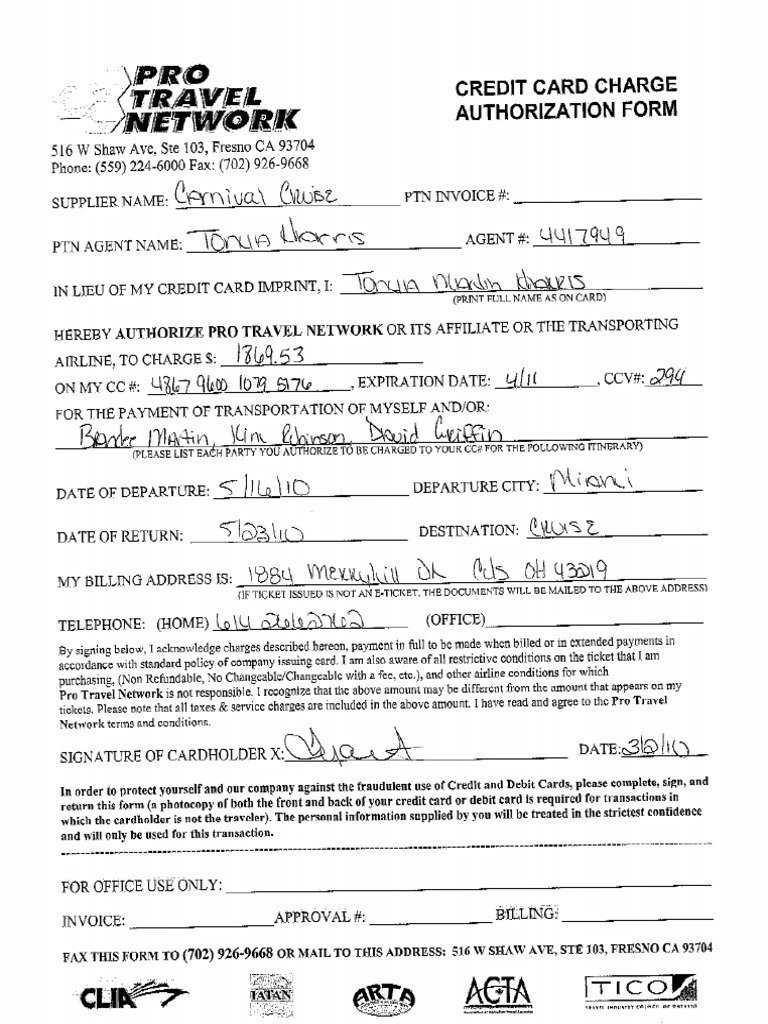 PRO
TRAVEL
NETWORK
CREDIT CARD CHARGE
AUTHORIZATION FORM
516 W Shaw Ave, Ste 103, Fresno CA 93704
Phone: (559) 224-6000 Fax: (702) 926-9668
SUPPLIER NAME: Carnival Cruise PTN INVOICE #:
PTN AGENT NAME: Tonya Harris AGENT #: 4417949
IN LIEU OF MY CREDIT CARD IMPRINT, I: Tonya Martin Harris
(PRINT FULL NAME AS ON CARD)
HEREBY AUTHORIZE PRO TRAVEL NETWORK OR ITS AFFILIATE OR THE TRANSPORTING
AIRLINE, TO CHARGE $: 1869.53
ON MY CC #: 4867 9600 1079 5176, EXPIRATION DATE: 4/11, CCV#: 294
FOR THE PAYMENT OF TRANSPORTATION OF MYSELF AND/OR:
Martin, Kim Robinson, David Griffin
(PLEASE LIST EACH PARTY YOU AUTHORIZE TO BE CHARGED TO YOUR CC# FOR THE FOLLOWING ITINERARY)
DATE OF DEPARTURE: 5/16/10 DEPARTURE CITY: Miami
DATE OF RETURN: 5/23/10 DESTINATION: Cruise
MY BILLING ADDRESS IS: 1884 Merryhill Dr Cols OH 43219
(IF TICKET ISSUED IS NOT AN E-TICKET, THE DOCUMENTS WILL BE MAILED TO THE ABOVE ADDRESS)
TELEPHONE: (HOME) 614 (OFFICE)
By signing below, I acknowledge charges described hereon, payment in full to be made when billed or in extended payments in
accordance with standard policy of company issuing card. I am also aware of all restrictive conditions on the ticket that I am
purchasing, (Non Refundable, No Changeable/Changeable with a fee, etc.), and other airline conditions for which
Pro Travel Network is not responsible. I recognize that the above amount may be different from the amount that appears on my
tickets. Please note that all taxes & service charges are included in the above amount. I have read and agree to the Pro Travel
Network terms and conditions.
SIGNATURE OF CARDHOLDER X: DATE: 3/2/10
In order to protect yourself and our company against the fraudulent use of Credit and Debit Cards, please complete, sign, and
return this form (a photocopy of both the front and back of your credit card or debit card is required for transactions in
which the cardholder is not the traveler). The personal information supplied by you will be treated in the strictest confidence
and will only be used for this transaction.
FOR OFFICE USE ONLY:
INVOICE: APPROVAL #: BILLING:
FAX THIS FORM TO (702) 926-9668 OR MAIL TO THIS ADDRESS: 516 W SHAW AVE, STE 103, FRESNO CA 93704
CLIA IATAN ARTA ACTA TICO
TRAVEL INDUSTRY COUNCIL OF ONTARIO